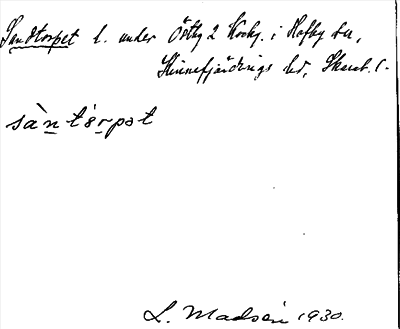 Sandtorpet l. under Östby 2 Kvby. i Hafby sn,
Kinnefjärdings hd, Skarab. l.
sàntɷrpət
L. Madsén 1930.